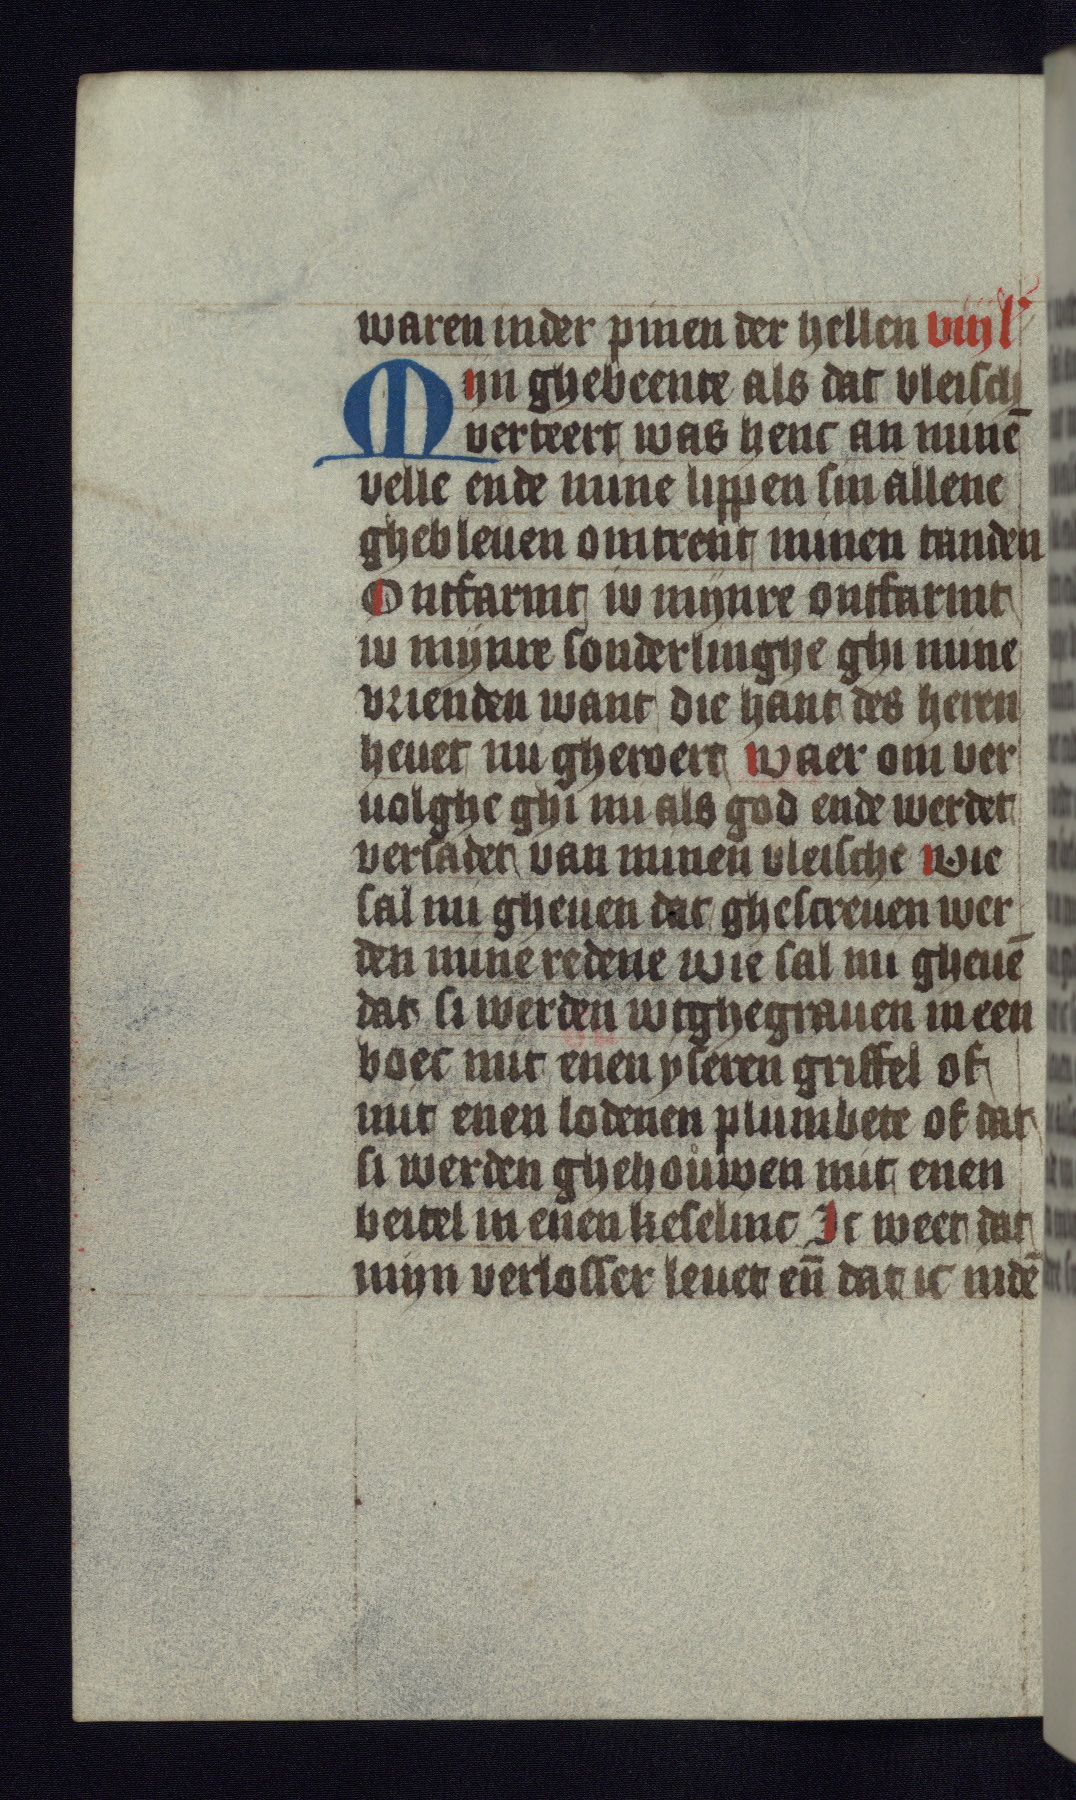 waren in der pinen der hellen viij l'
Mijn ghebeente als dat vleisch
verteert was henc an minē
velle ende mine lippen sin allene
ghebleuen omtrent minen tanden
Ontfarmt iv mijnre ontfarmt
iv mijnre sonderlinghe ghi mine
vrienden want die hant des heren
heuet mi gheroert Waer om ver
uolghe ghi mi als god ende werdet
versadet van minen vleische Wie
sal mi gheuen dat ghescreuen wer
den mine redene wie sal mi gheuē
dat si werden wtghegrauen in een
boec mit enen yseren griffel of
mit enen lodenen plumbete of dat
si werden ghehouwen mit enen
beitel in enen keselinc Ic weet dat
mijn verlosser leuet eñ dat ic indē